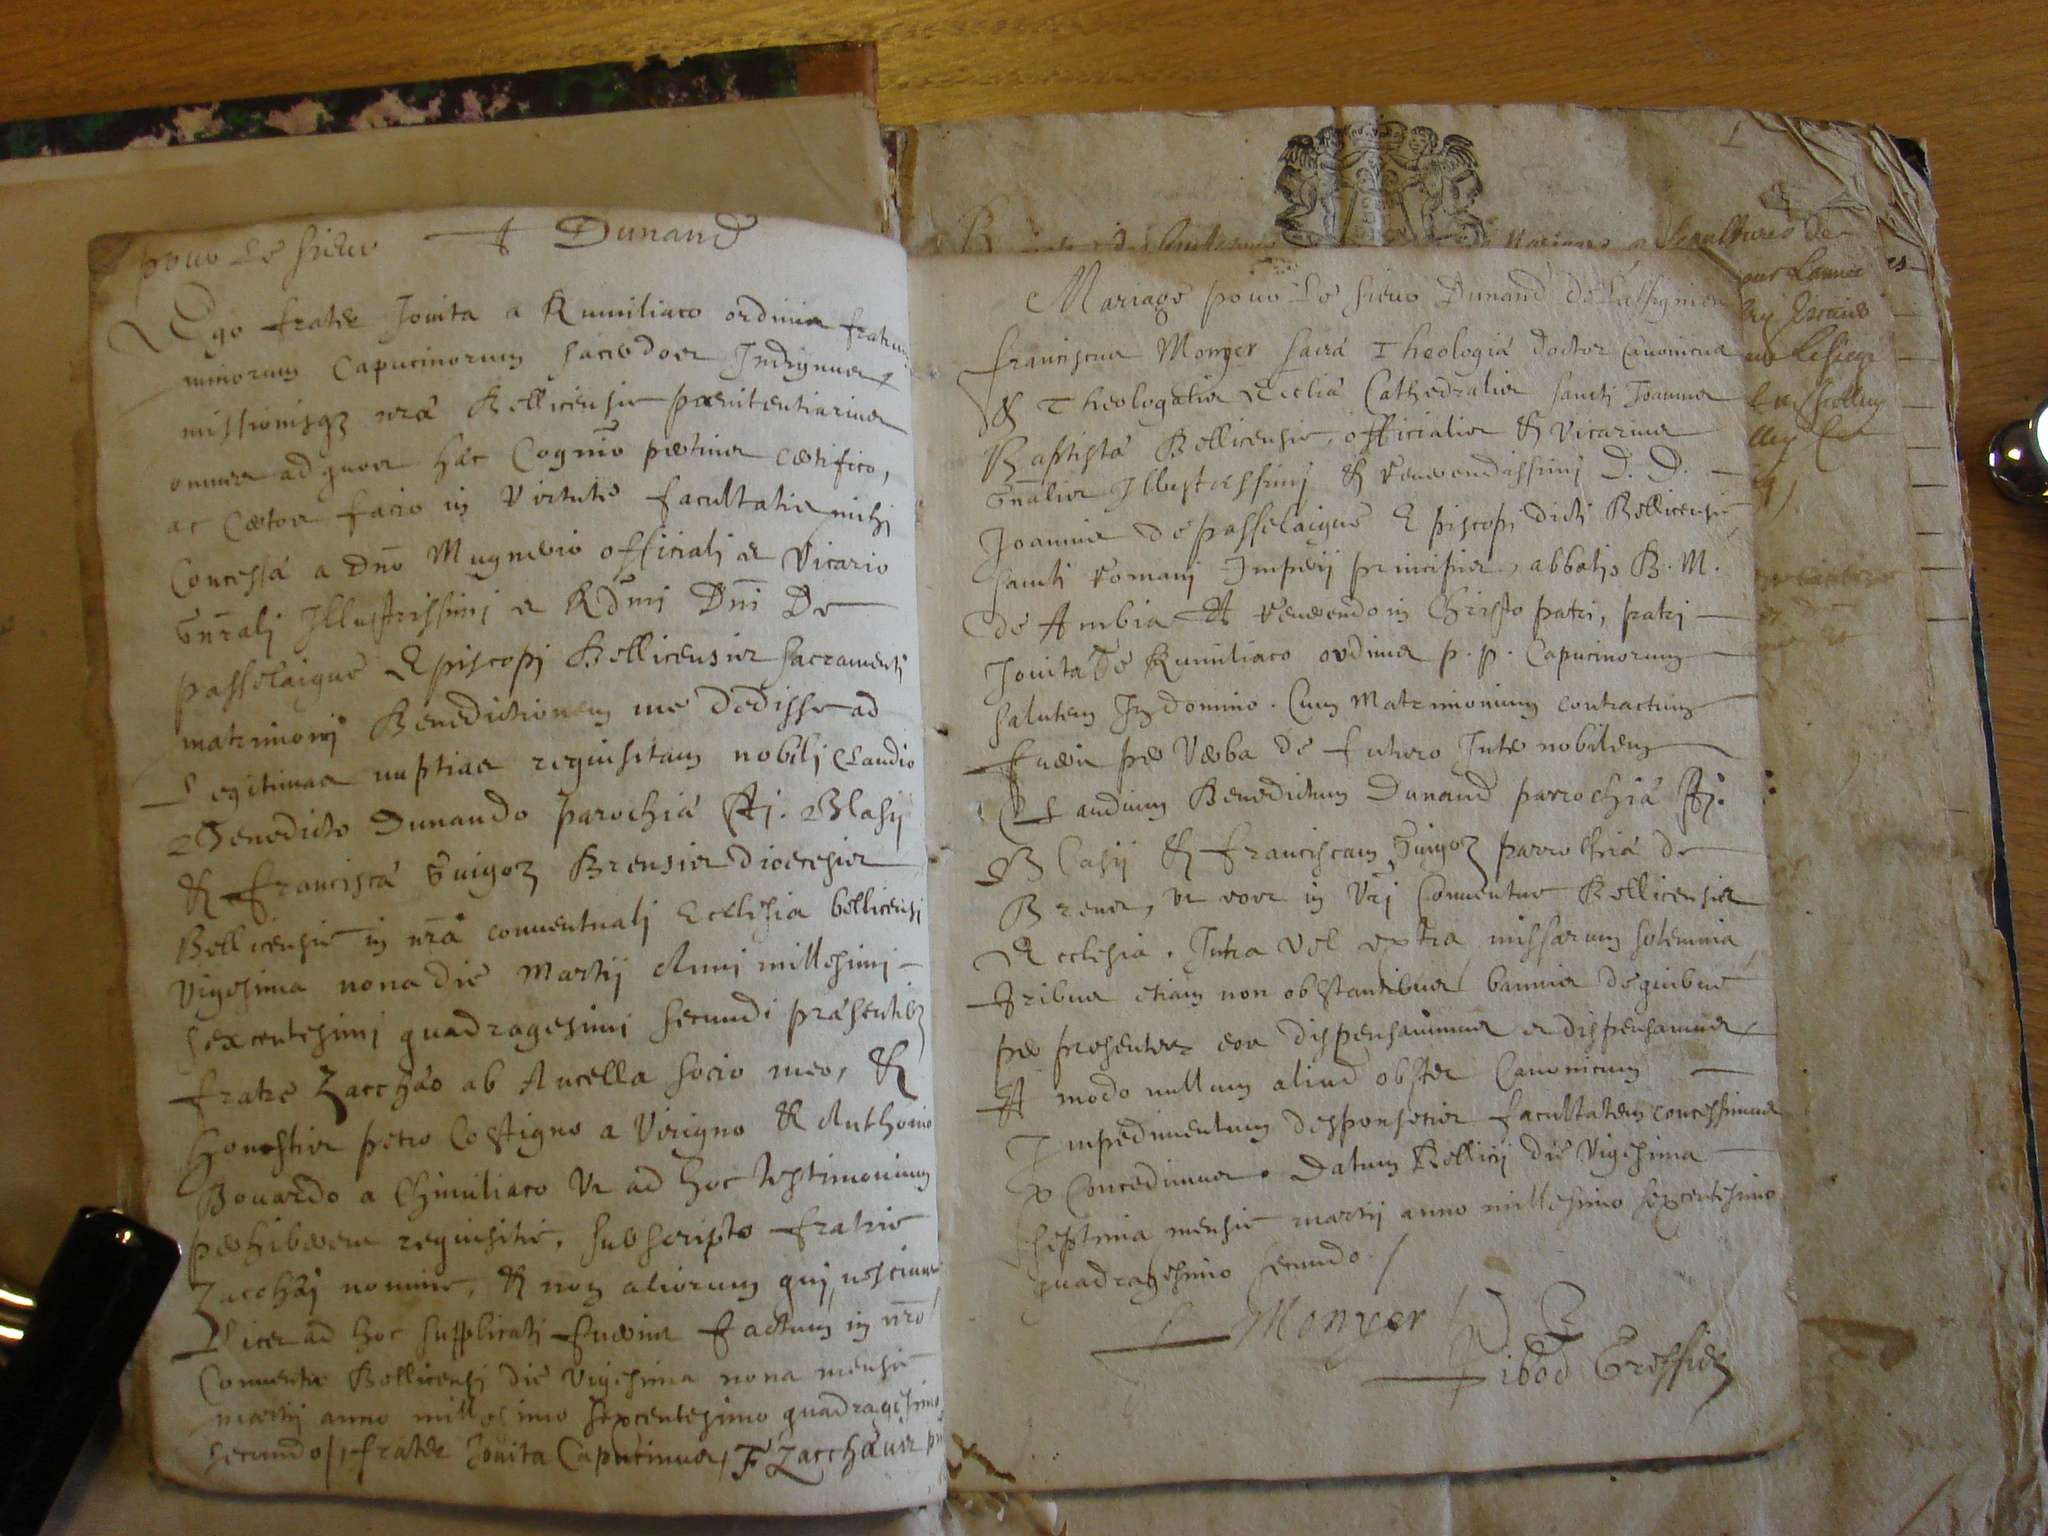 pour Le sieur Dunand
Ego frater Jouita a Rumiliaco ordinis fratrum
minorum Capucinorum sacerdos Indignus
missionisq3 nrá Bellicensis pœnitentiarius
omnes ad quos hac Cognitio pertinet certifico,
ac Certos facio in Virtute facultatis mihi
Concessá a Dno Mugnerio officiali et Vicario
Gnrali Illustrissimi et Rdmi Dni De
passelaigue Episcopi Bellicensis sacramenti
matrimonij Benedictionem me Dedisse ad
Legitimas nuptias requisitam nobili Claudio
Benedicto Dunando parochiá Sti. Blasij
& franciscá Guigoz Brensis dioecesis
Bellicensis in nrá conuentuali Ecclesia bellicensi
Vigesima nona die Martij Anni millesimi
sexcentesimi quadragesimi secundi práesentib3
fratre Zacchǽo ab Aucella socio meo, &
honestis petro Costigno a Virigno & Anthonio
Bouardo a Chimiliaco Vt ad hoc testimonium
perhiberent requisitis, subscripto fratris
Zacchǽi nomine, & non aliorum qui nesciunt
Licet ad hoc supplicati fuerint factum in nro
Conuentu Bellicensi die Vigesima nona mensis
martij anno millesimo sexcentesimo quadragesimo
secundo /, frater Jouita Capucinus, F Zacchǽus
1
Mariage pour Le sieur Dunand de
franciscus Monyer sacrá Theologiá doctor Canonicus
& Theologalis Ecclesiá Cathedralis sancti Joannis
Baptistá Bellicensis, officialis & Vicarius
Gnalis Illustrissimi & reuerendissimi D. D.
Joannis de passelaigue Episcopi dicti Bellicensis,
sancti romani Imperij principis, abbatis B. M.
de Ambia Et reuerendo in Christo patri, fratri
Jouita de Rumiliaco ordinis p. p. Capucinorum
salutem In domino. Cum Matrimonium contractum
fuerit per Verba de futuro Inter nobilem
Claudium Benedictum Dunand parrochiá Sti.
Blasij & franciscam Guigoz parrochiá de
Brens, vt eos in Vri Conuentus Bellicensis
Ecclesia. Intra vel extra missarum solemnia
tribus etiam non obstantibus bannis de quibus
per presentes eos dispensauimus et dispensamus
Et modo nullum aliud obstet Canonicum
Impedimentum desponsetis facultatem concessimus
& Concedimus. Datum Bellicij die Vigesima
septima mensis martij anno millesimo sexcentesimo
quadragesimo secundo /
Monyer